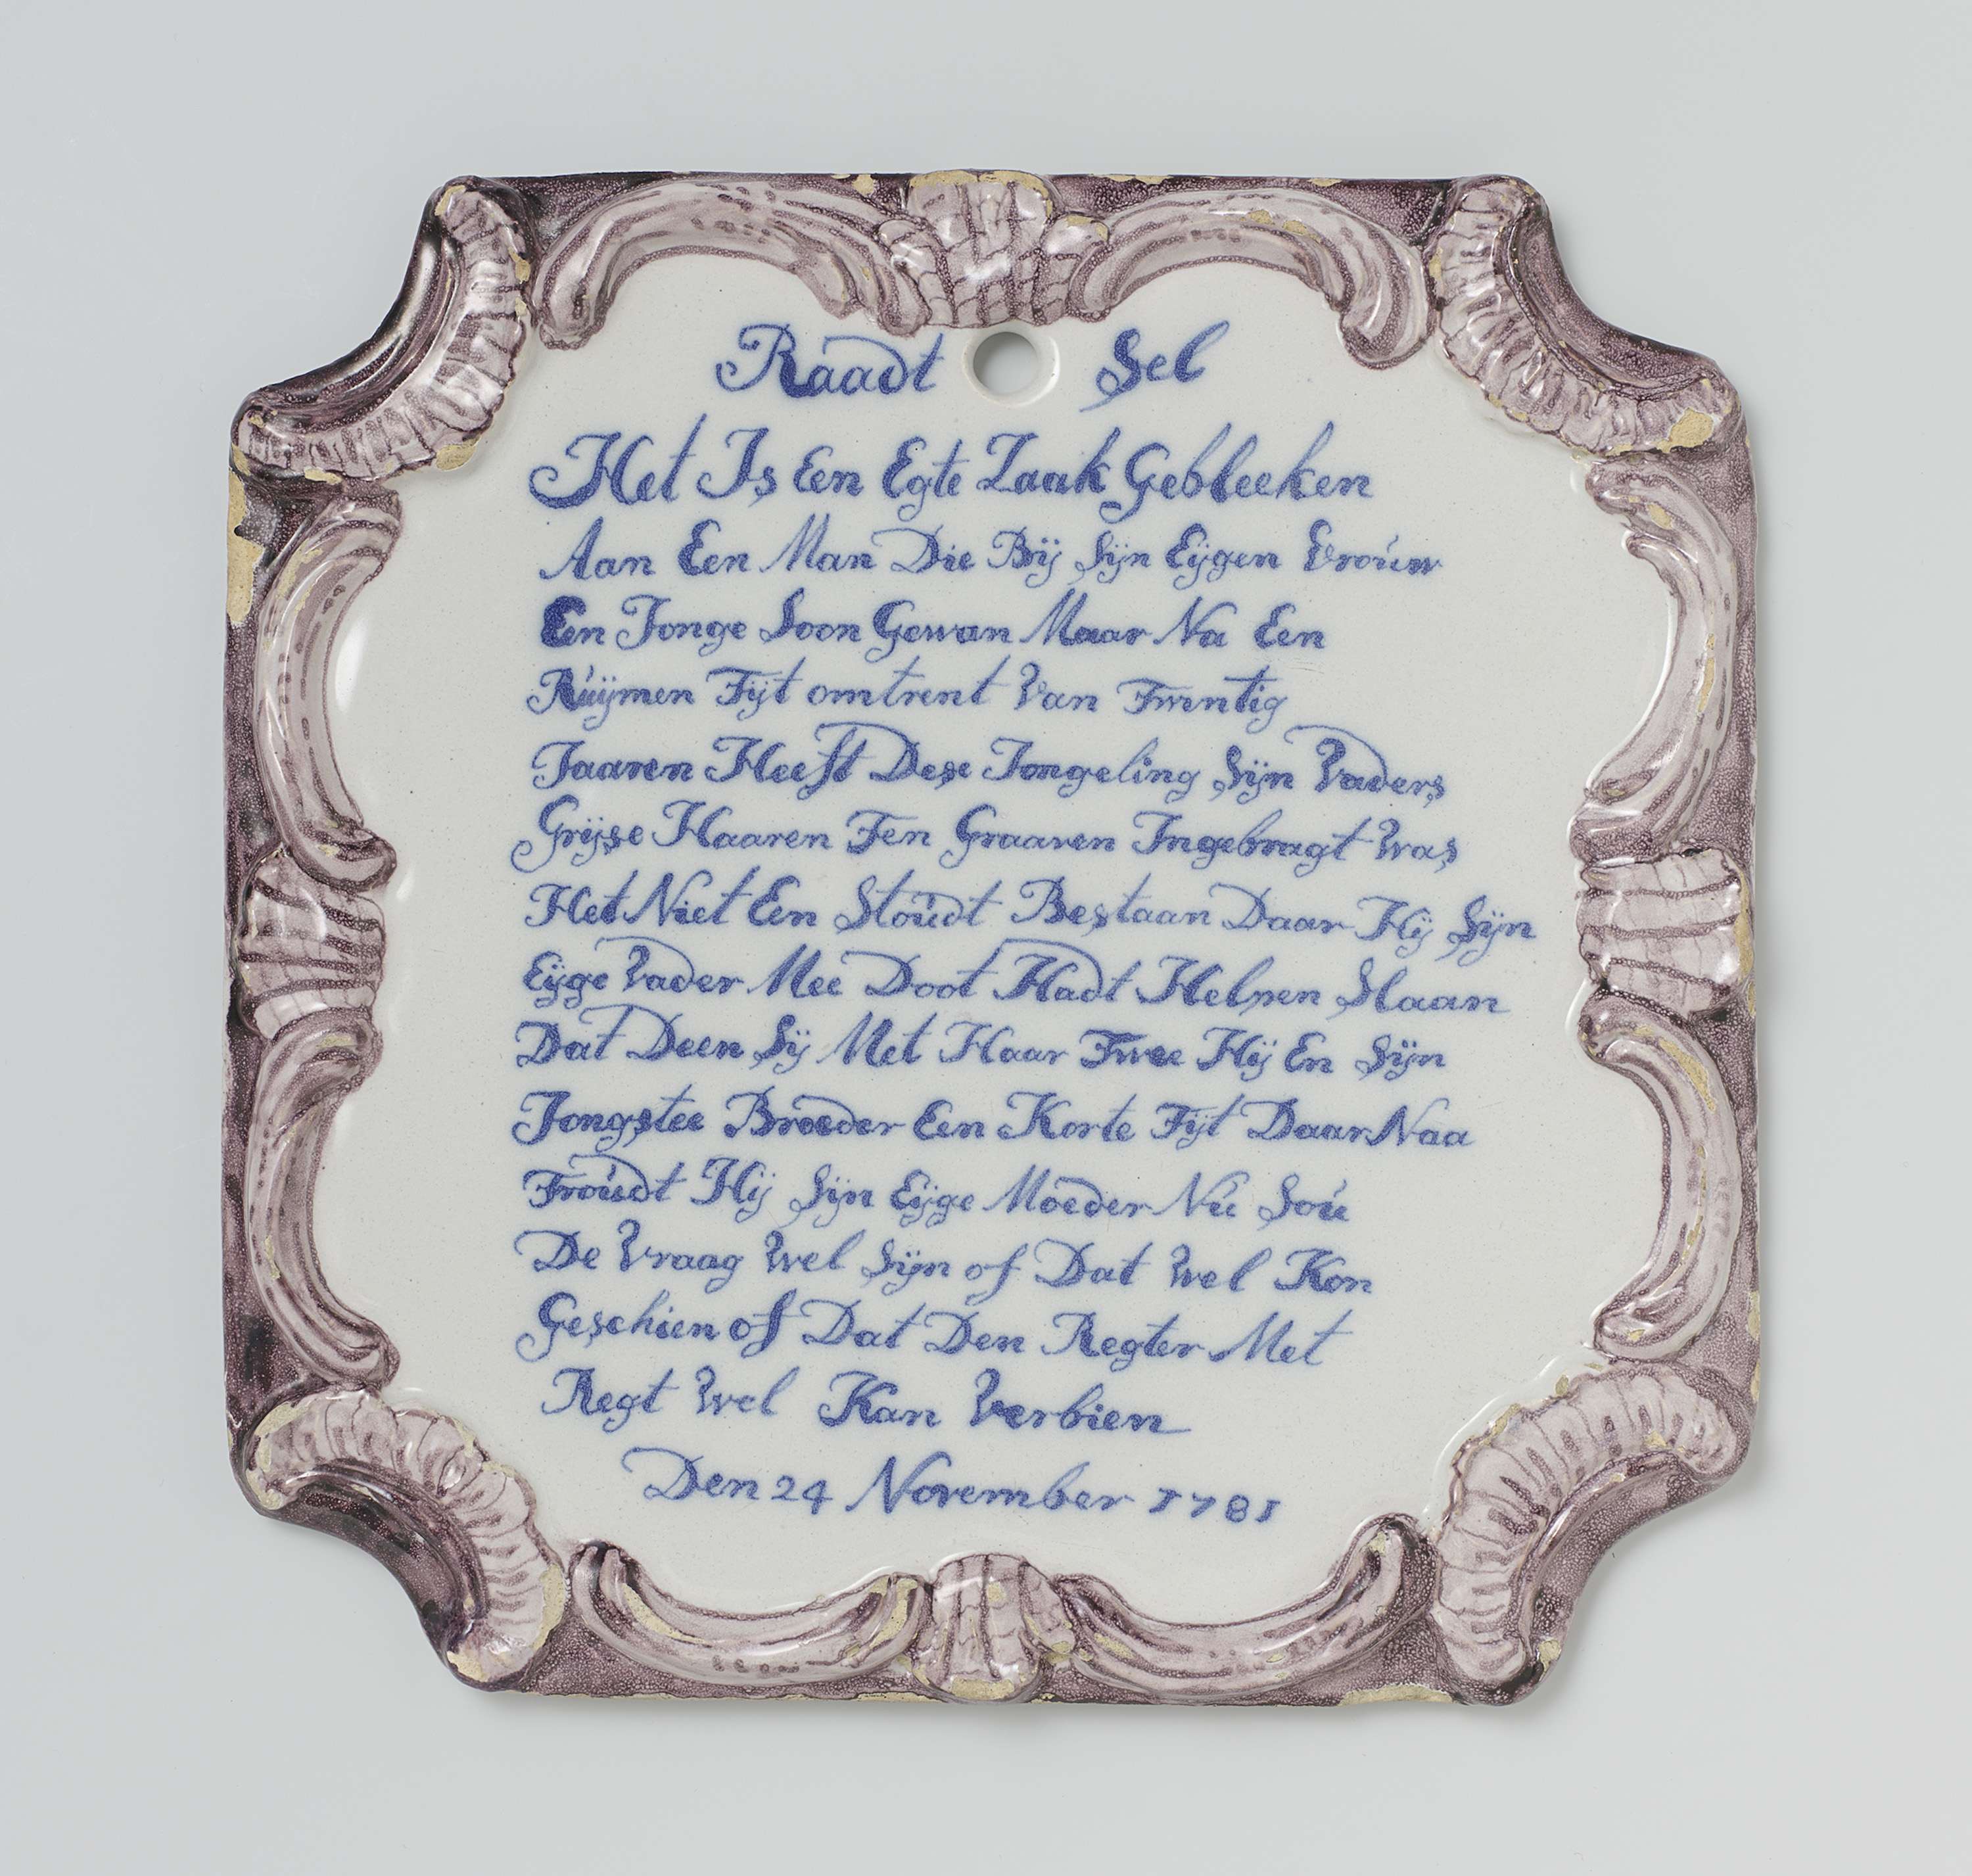 Raadt Sel
Het Is Een Egte Zaak Gebleeken
Aan Een Man Die Bÿ Sÿn Eÿgen Vrouw
Een Jonge Soon Gewan Maar Na Een
Ruÿmen Tÿt omtrent Van Twintig
Jaaren Heeft Dese Jongeling Sÿn Vaders
Grÿse Haaren Ten Graaven Ingebragt Was
Het Niet Een Stoudt Bestaan Daar Hÿ Sÿn
Eÿge Vader Mee Doot Hadt Helpen Slaan
Dat Deen Sÿ Met Haar Twee Hÿ En Sÿn
Jongstee Broeder Een Korte Tÿt Daar Naa
Troudt Hÿ Sÿn Eÿge Moeder Nu Sou
De Vraag Wel Sÿn of Dat Wel Kon
Geschien of Dat Den Regter Met
Regt Wel Kan Verbien
Den 24 November 1781